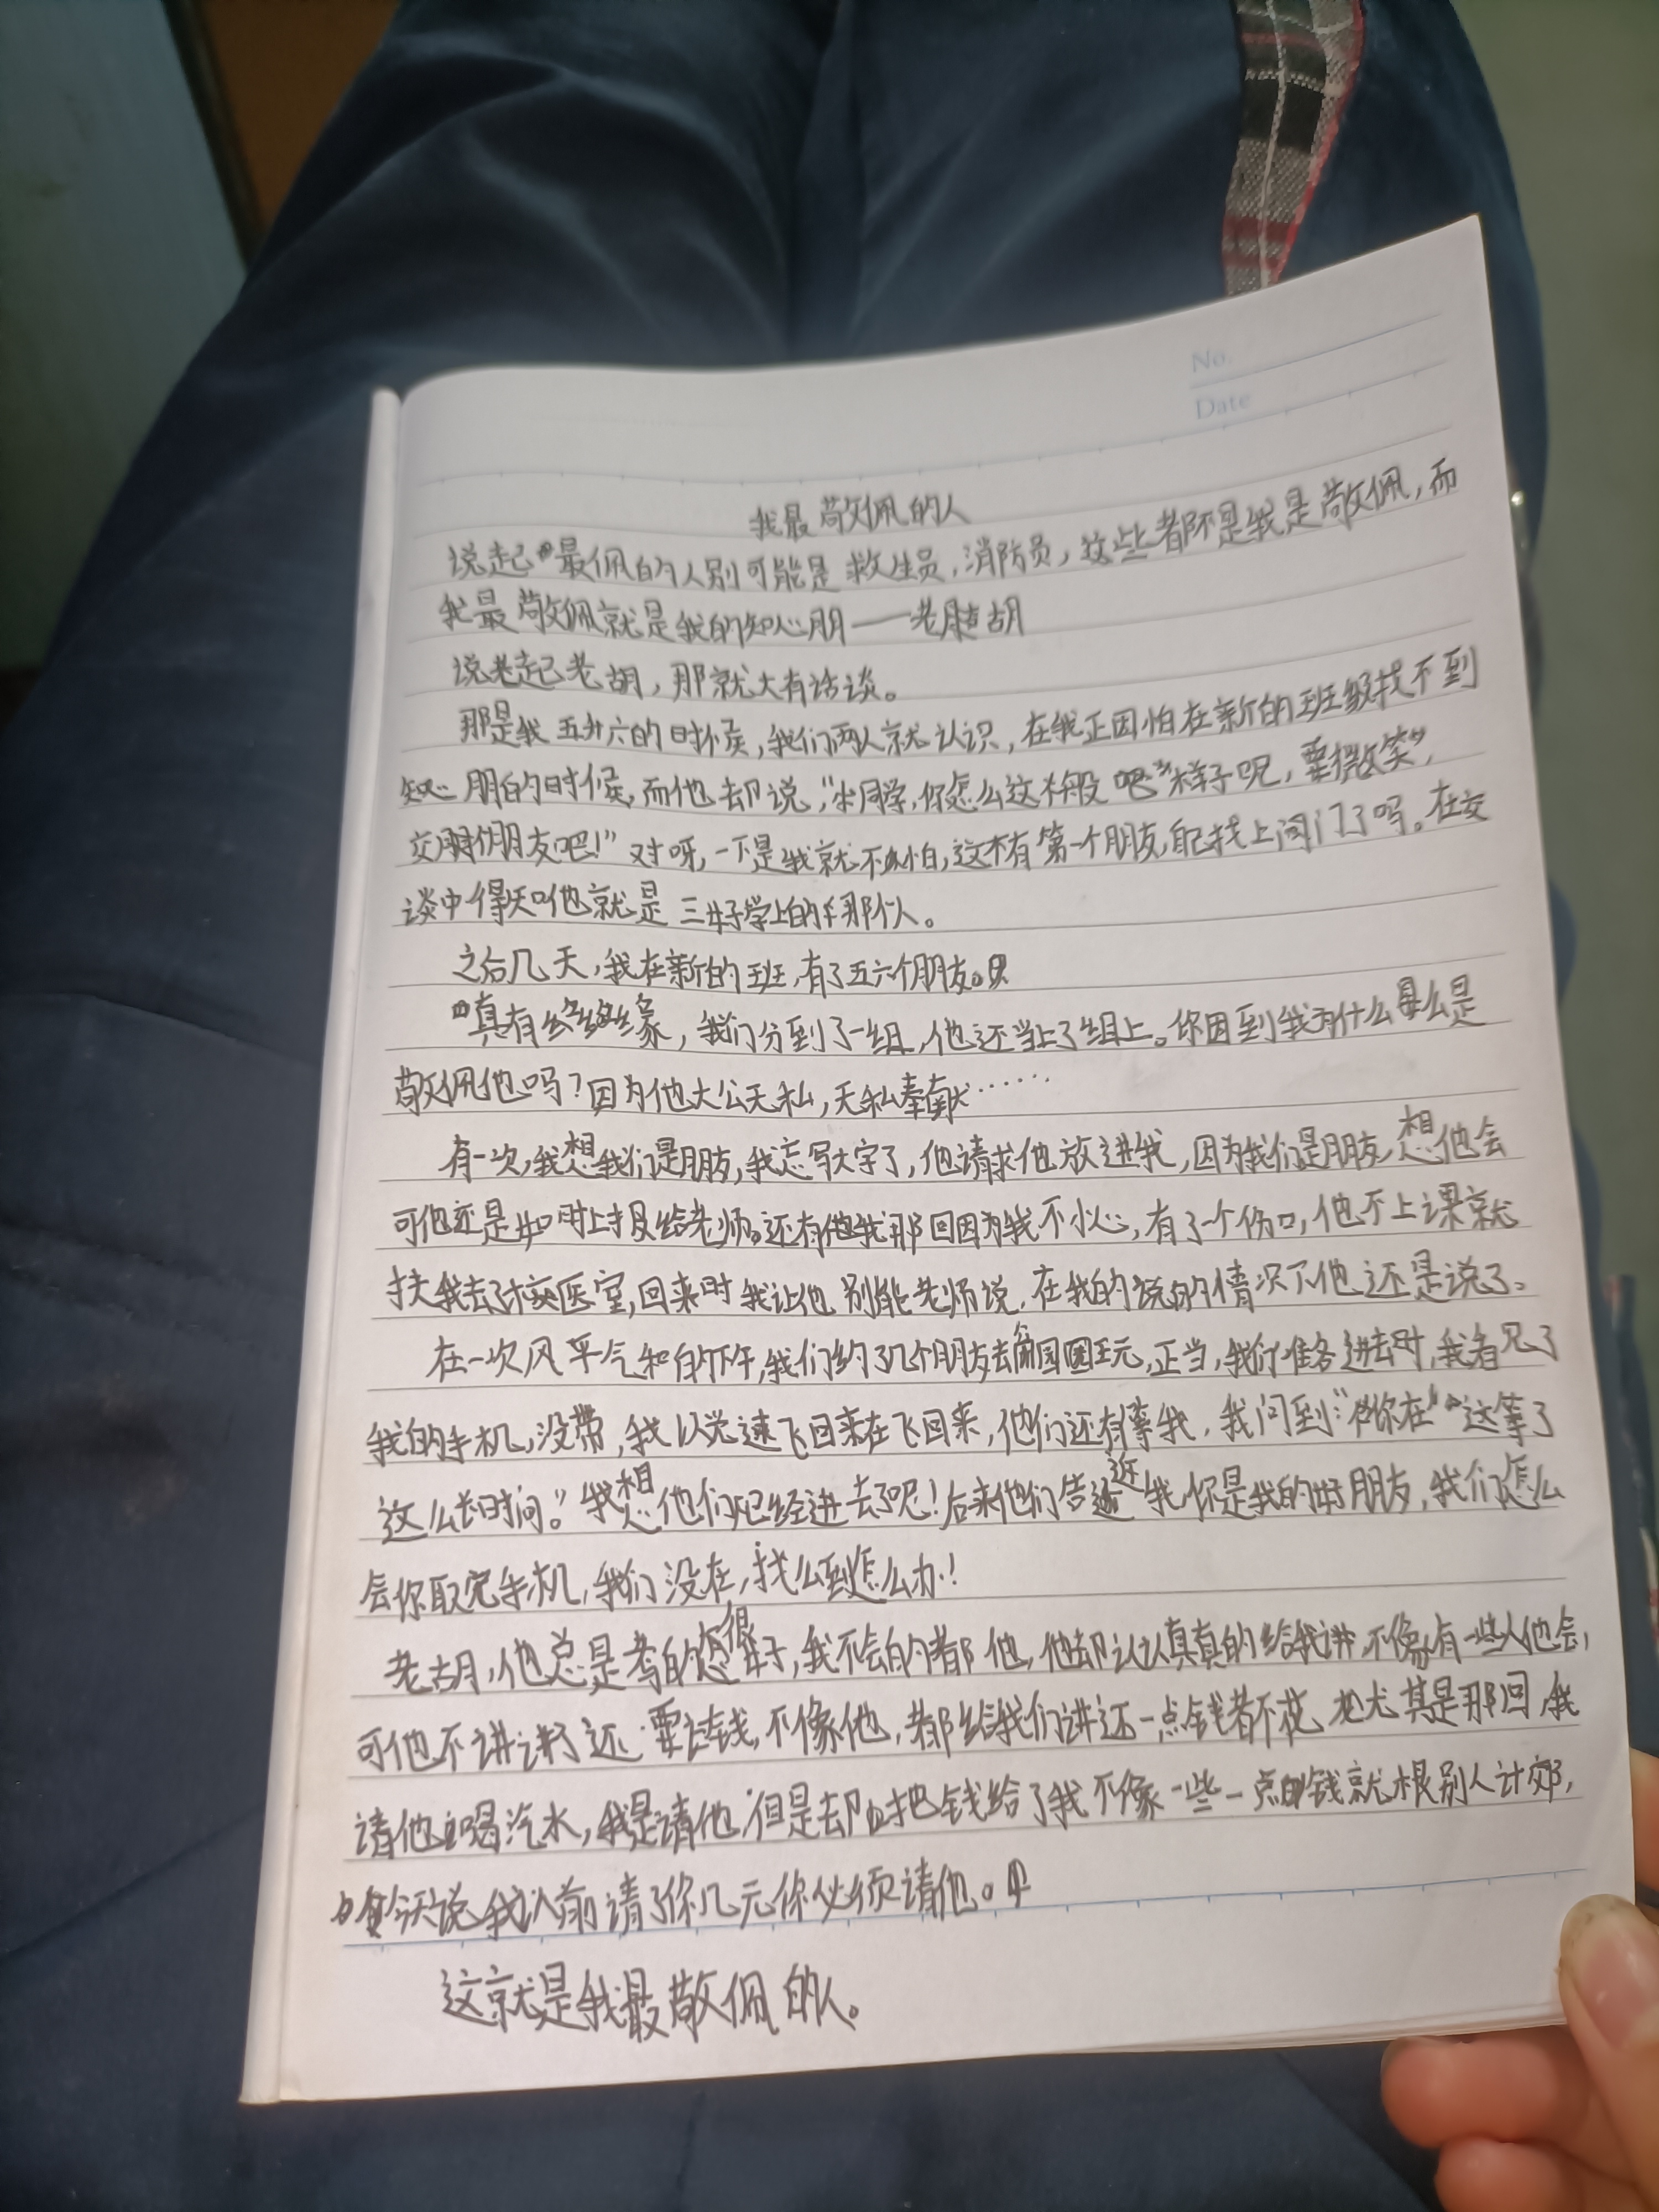 No.
Date
我最敬佩的人
说起最佩的人别可能是救生员,消防员,这些都不是我是敬佩,而
我最敬佩就是我的知心朋——老胡
说起老胡,那就大有话谈。
那是我五升六的时候,我们两人就认识,在我正因怕在新的班级找不到
知心朋的时候,而他却说,“同学,你怎么这样子呢,要微笑”,
交朋友吧!”对呀,于是我就不怕,这不有第一个朋友自己找上门了吗。在交
谈中得知他就是三好学上的那个人。
之后几天,我在新的班,有了五六个朋友。
真有缘,我们分到了一组,他还当上了组上。你因到我为什么是
敬佩他吗?因为他大公无私,无私奉献……
有一次,我想我们是朋友,我忘写大字了,他请求他放进我,因为我们是朋友,想他会
可他还是如时上报给老师。还有他我那回因为我不小心,有了一个伤口,他不上课就
扶我去了校医室,回来时我让他别能老师说,在我的说的情况下他还是说了。
在一次风平气和的下午,我们约了几个朋友去,正当,我们准备进去时,我看见了
我的手机,没带,我以光速飞回来在飞回来,他们还有等我,我问到:“你在这等了
这么长时间。”我想他们已经进去了呢!后来他们告近我,你是我的好朋友,我们怎么
会你取完手机,我们没在,找么到怎么办!
老胡,他总是考的很好,我不会的都他,他却认认真真的给我讲,不像有一些人他会,
可他不讲讲了还要去钱,不像他,都给我们讲还一点钱都不花,尤其是那回,我
请他喝汽水,我是请他,但是却把钱给了我不像一些一点钱就根别人计郊,
今天说我以前请了你几元你必须请他。
这就是我最敬佩的人。